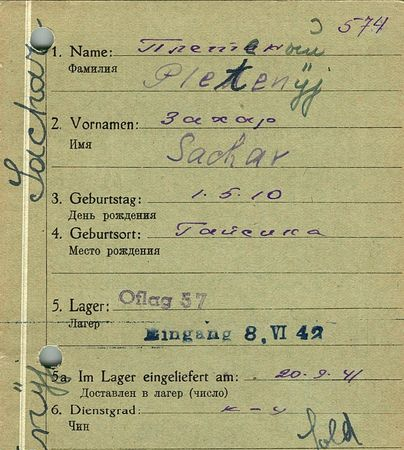 574
1. Name: Плетеный
Фамилия
Pletenyj
2. Vornamen: Захар
Имя
Sachar
3. Geburtstag: 1.5.10
День рождения
4. Geburtsort: Гайсина
Место рождения
5. Lager: Oflag 57
Лагерь
Eingang 8. VI 42
5a. Im Lager eingeliefert am: 20-9-41
Доставлен в лагерь (число)
6. Dienstgrad: к-ц
Чин
Sold
Sachar